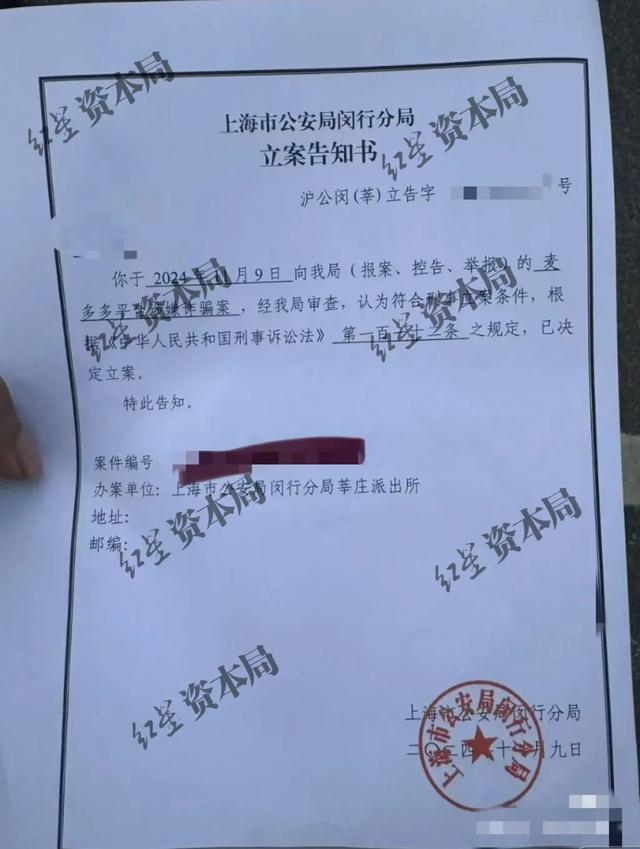 上海市公安局闵行分局
立案告知书
沪公闵(莘)立告字 号
你于 2024年11月9日 向我局(报案、控告、举报)的 麦
多多平台 诈骗案,经我局审查,认为符合刑事立案条件,根
据《中华人民共和国刑事诉讼法》第一百 十二条 之规定,已决
定立案。
特此告知。
案件编号
办案单位:上海市公安局闵行分局莘庄派出所
地址:
邮编:
上海市公安局闵行分局
二〇二四 十 月九日
上海市公安局闵行分局
红星资本局
红星资本局
红星资本局
红星资本局
红星资本局
红星资本局
红星资本局